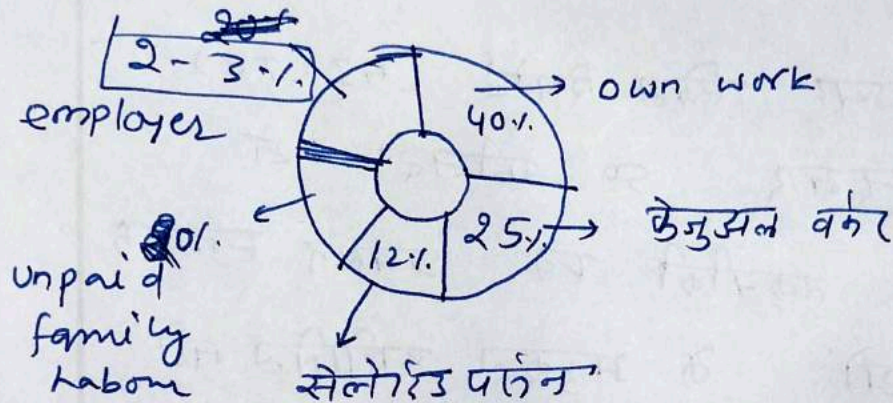 2 - 3 %
employer
40%
→ own work
25%
→ केजुअल वर्कर
12%
सेलेरिड पर्सन
unpaid
family
Labour